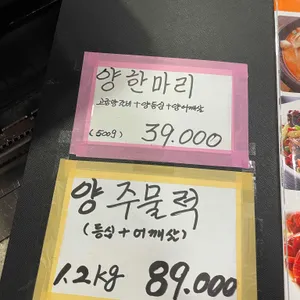 양 한마리
고급양갈비 + 양등심 + 양어깨살
(500g) 39.000
양 주물럭
(등심 + 어깨살)
1.2kg 89.000